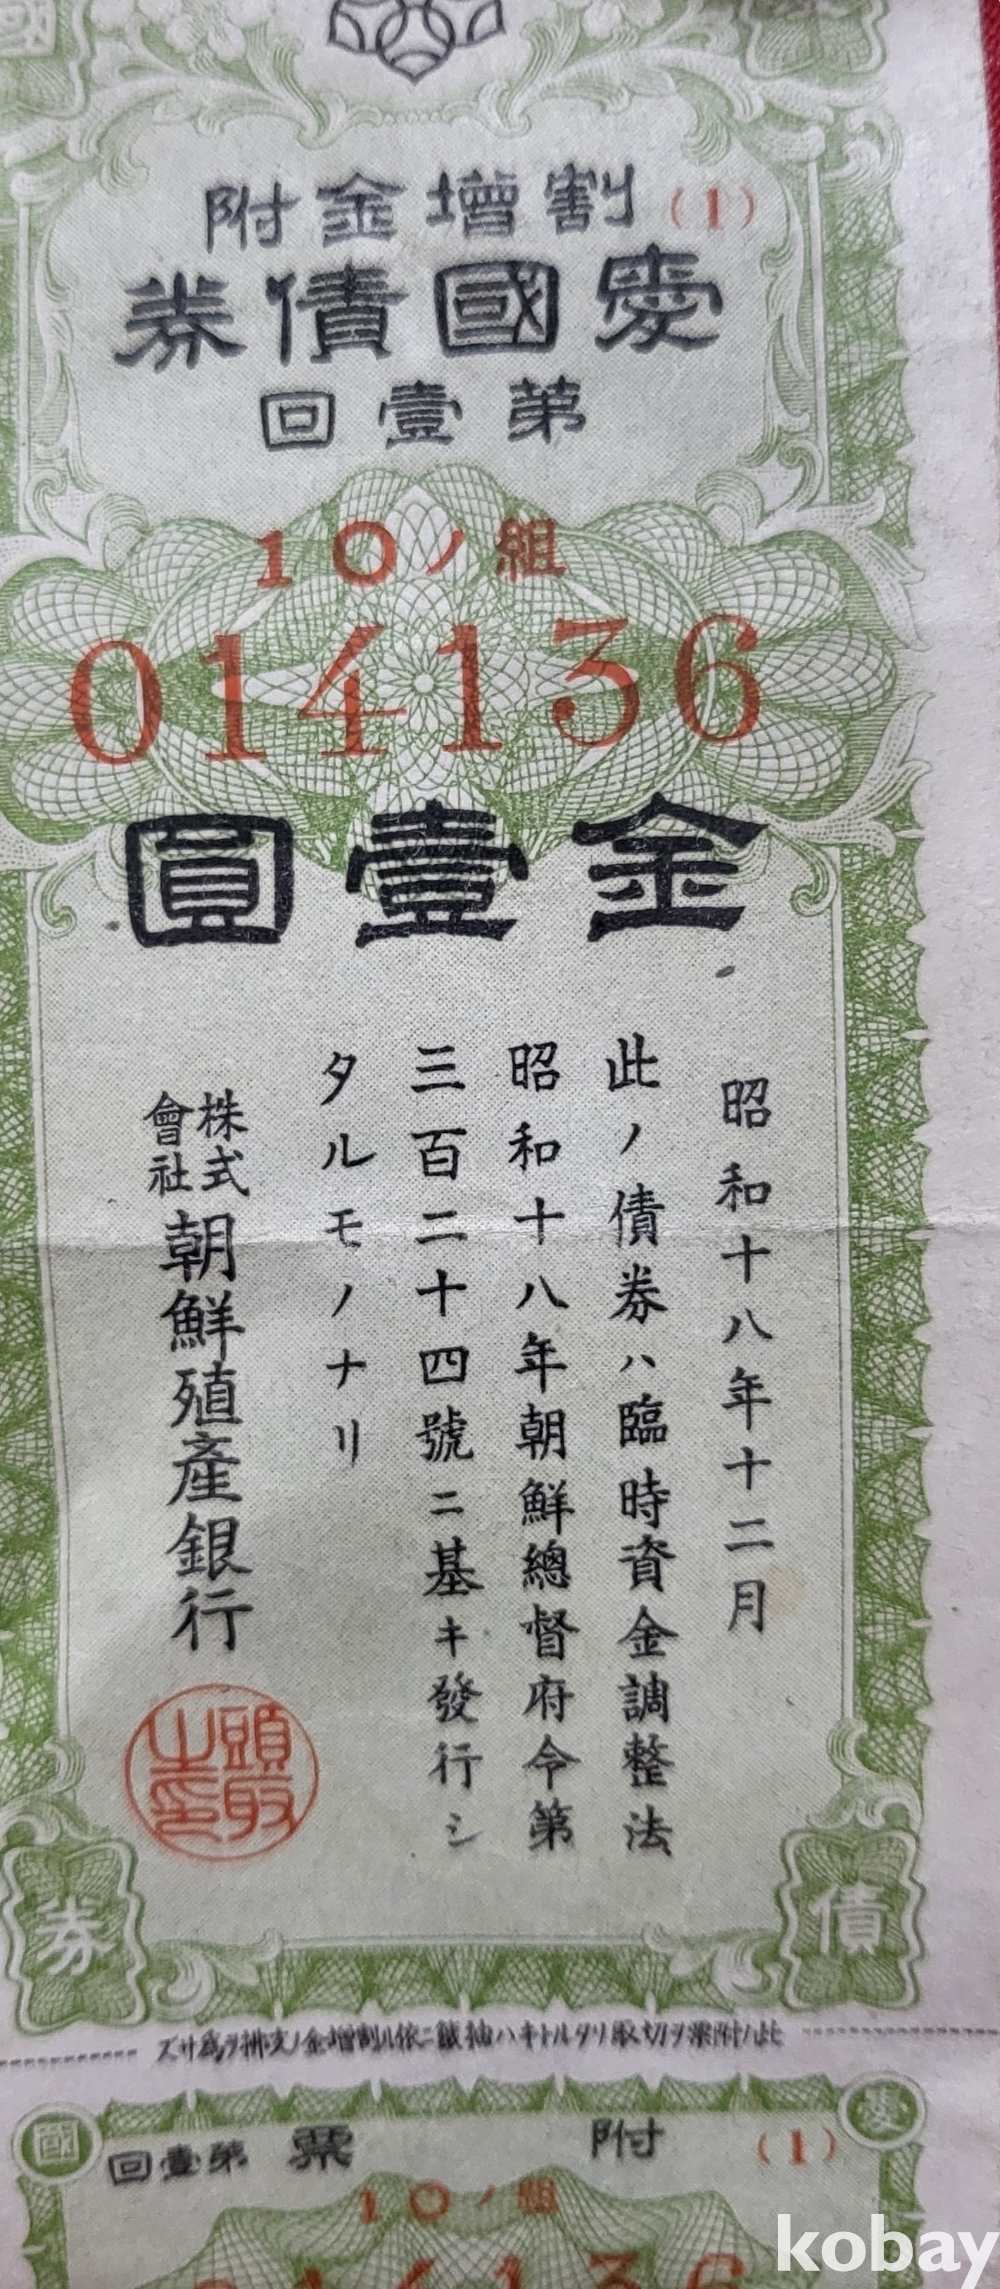 割增金附 (1)
愛國債券
第壹回
10ノ組
014136
金壹圓
昭和十八年十二月
此ノ債券ハ臨時資金調整法
昭和十八年朝鮮總督府令第
三百二十四號ニ基キ發行シ
タルモノナリ
株式會社朝鮮殖產銀行
頭取之印
債
券
此ノ附票ヲ切取リタルトキハ抽籤ニ依ル割增金ノ支拂ヲ爲サズ
愛
國
(1)
附票 第壹回
10ノ組
014136
kobay